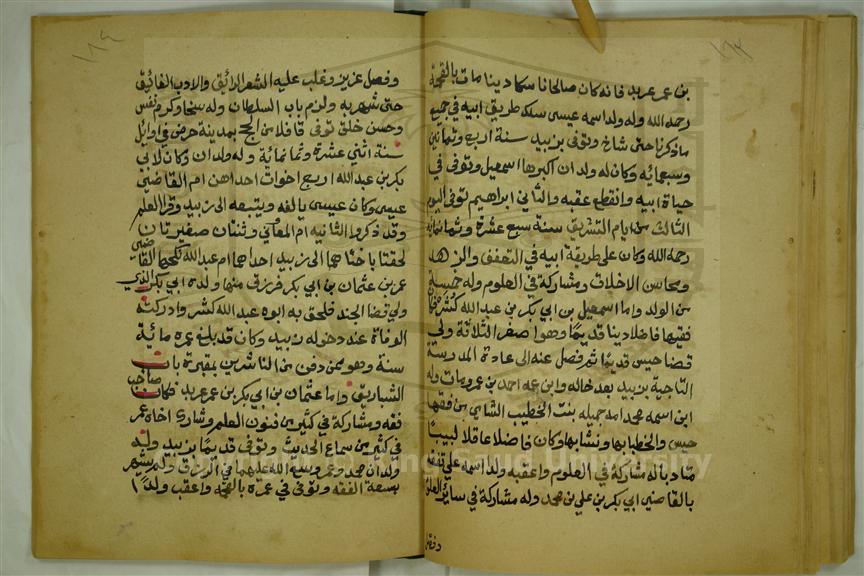 ١٦٣
بن عمر عربد فانه كان صالحا ناسكا دينا مات بالقحمة
رحمه الله وله ولد اسمه عيسى سلك طريق ابيه في جميع
ما ذكرنا حتى شاخ وتوفى بزبيد سنة اربع وثمانين
وسبعمائه وكان له ولدان اكبرها اسمعيل وتوفى في
حياة ابيه وانقطع عقبه والثاني ابراهيم توفى اليوم
الثالث من ايام التشريق سنة سبع عشرة وثمانمائه
رحمه الله وكان على طريقة ابيه في التعفف والزهد
ومحاسن الاخلاق ومشاركة في العلوم وله خمسة
من الولد واما اسمعيل بن ابي بكر بن عبد الله كنشر فكان
فقيها فاضلا دينا قديما وهوا صغر الثلاثة ولي
قضا حيس قديما ثم فصل عنه الى عادة المدرسة
التاجية بزبيد بعد خاله وابن عمه احمد بن عمر ومات وله
ابن اسمه محمد امه جميله بنت الخطيب الشامي من فقها
حيس والخطبا بها ونشا بها وكان فاضلا عاقلا لبيبا
متادبا له مشاركة في العلوم واعقبه ولدا اسمه علي تفقه
بالقاضي ابي بكر بن علي بن محمد وله مشاركة في ساير العلوم
١٦٤
وفصل عزيز وغلب عليه الشعر الرائق والادب الفائق
حتى شهر به ولزم باب السلطان وله سخا وكرم نفس
وحسن خلق توفى قافلا من الحج بمدينة حرض في اوائل
سنة اثني عشرة وثمانمائة وله ولدان وكان لابي
بكر بن عبد الله اربع اخوات احداهن ام القاضي
عيسى وكان عيسى يالفه ويتبعه الى زبيد وقرا العلم
وقد ذكروا الثانيه ام المعاني وثنتان صغيرتان
لحقتا باختاهما الى زبيد احداهما ام عبد الله نكحها القاضي
عمر بن عثمان بن ابي بكر فرزق منها ولده ابي بكر الذي
ولي قضا الجند فلحق به ابوه عبد الله كنشر وادركته
الوفاة عند دخوله زبيد وكان قد بلغ عمره مائية
سنة وهو ممن دفن من الناشرين بمقبرة باب
الشباريق واما عثمان بن ابي بكر بن عمر عربد فكان صاحب
فقه ومشاركة في كثير من فنون العلم وشارك اخاه عمر
في كثير من سماع الحديث وتوفى قديما بزبيد وله
ولدان محمد وعمر وسع الله عليهما في الرزق ولم يشتهر
بسعة الفقه وتوفى في عمره بالقحمه واعقب ولدا